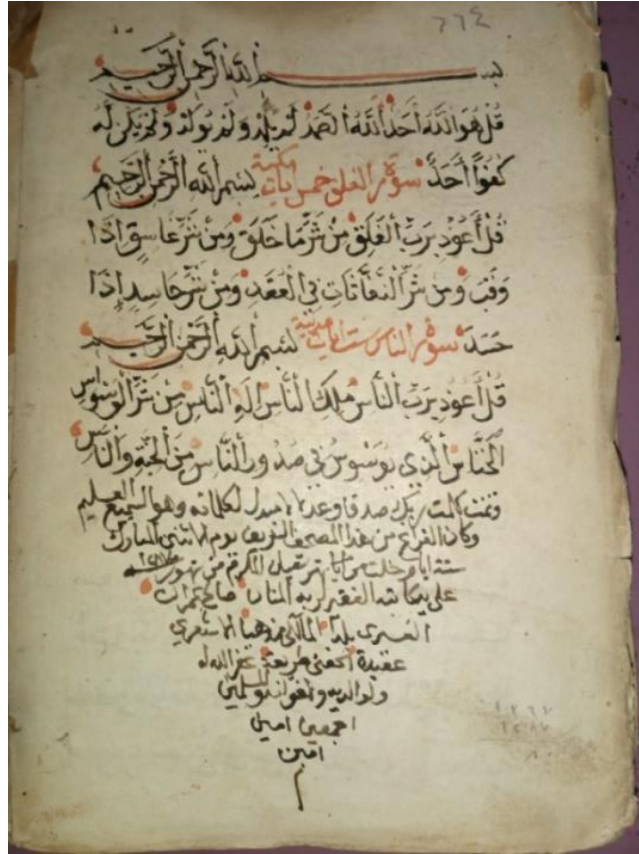 ٢٢٤
بسم الله الرحمن الرحيم
قُل هو الله أحد الله الصمد لم يلد ولم يولد ولم يكن له
كفوا أحد سورة الفلق خمس ايات مكية بسم الله الرحمن الرحيم
قل أعوذ برب الفلق من شر ما خلق ومن شر غاسق اذا
وقب ومن شر النفاثات في العقد ومن شر حاسد إذا
حسد سورة الناس ست ايات مدنية بسم الله الرحمن الرحيم
قل أعوذ برب الناس ملك الناس اله الناس من شر الوسواس
الخناس الذي يوسوس في صدور الناس من الجنة والناس
وتمت كلمت ربك صدقا وعدلا لا مبدل لكلماته وهو السميع العليم
وكان الفراغ من هذا المصحف الشريف يوم الاثنين المبارك
ستة ايام خلت من من شهور
على يد كاتبه الفقير لربه المنان صالح
بلدا المالكي مذهبا الاشعري
عقيدة طريقة غفر الله له
ولوالديه والمسلمين
اجمعين امين
امين